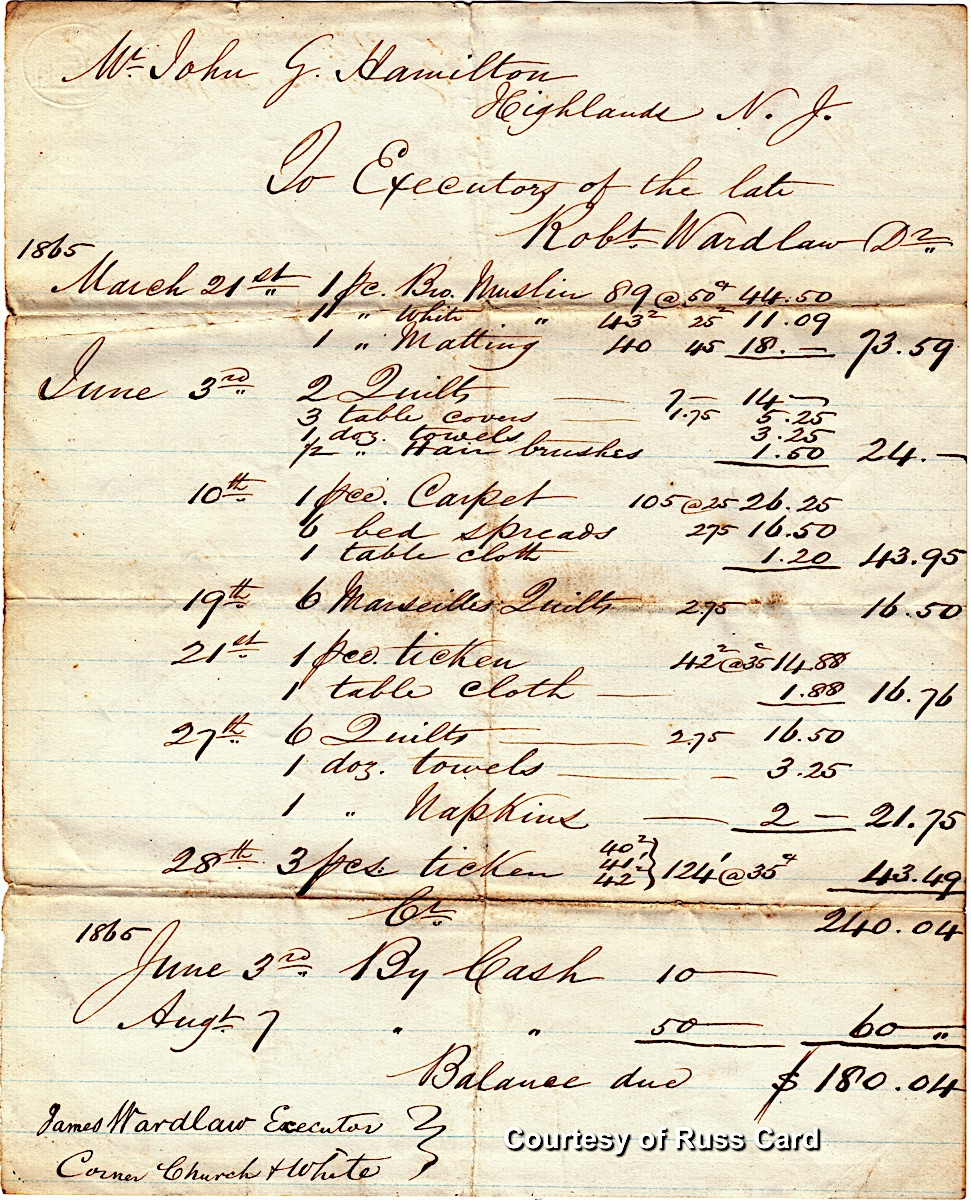 Mr. John G. Hamilton
Highlands N. J.
To Executors of the late
Robt. Wardlaw Dr.
1865
March 21st 1 pc. Bro. Muslin 89 @ 50c 44.50
1 " White " 43² 25² 11.09
1 " Matting 40 45 18.— 73.59
June 3rd 2 Quilts — 7— 14—
3 table covers — 1.75 5.25
1 doz. towels 3.25
½ " Hair brushes 1.50 24.—
10th 1 pce. Carpet 105 @ 25 26.25
6 bed spreads 275 16.50
1 table cloth 1.20 43.95
19th 6 Marseilles Quilts 2.75 16.50
21st 1 pce. ticken 42² @ 35² 14.88
1 table cloth — 1.88 16.76
27th 6 Quilts — 2.75 16.50
1 doz. towels — — 3.25
1 " Napkins — 2 — 21.75
28th 3 pcs. ticken 40² 41' 42² } 124' @ 35c 43.49
Cr. 240.04
1865
June 3rd By Cash 10—
Augt. 7 " " 50— 60—"
Balance due $180.04
James Wardlaw Executor }
Corner Church & White
Courtesy of Russ Card